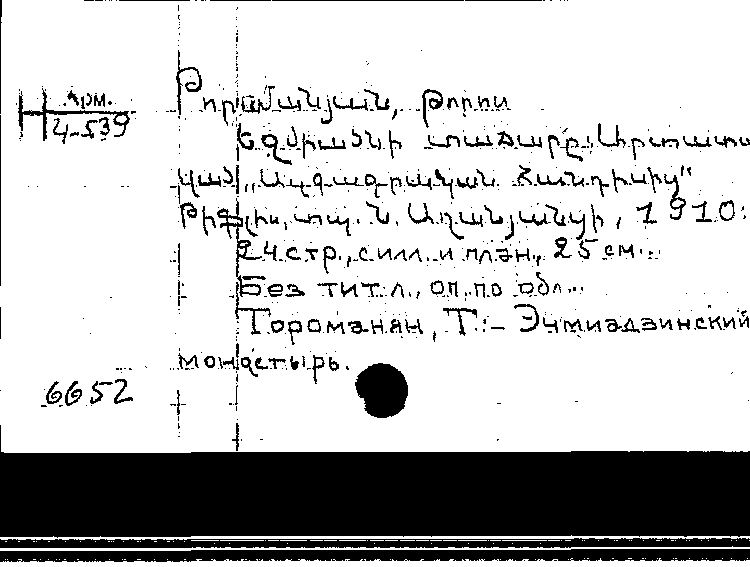 Арм.
Н 4-539
Թորամանյան, Թորոս
Եջմիածնի տաճարը. Արտատպ
ված „Ազգագրական Հանդիսից“
Թիֆլիս, տպ. Ն. Աղանյանցի, 1910:
24 стр., с илл. и план., 25 см..
Без тит. л., оп. по обл..
Тороманян, Т.:- Эчмиадзинский
монастырь.
6652